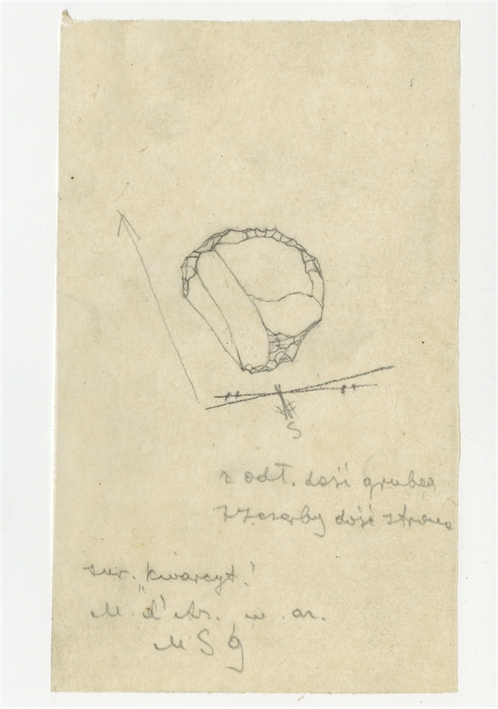 S
z odł. dość grubeg
zzesarby dość strome
sur. "kwarcyt."
M. d'Ar. w. ar.
M S g